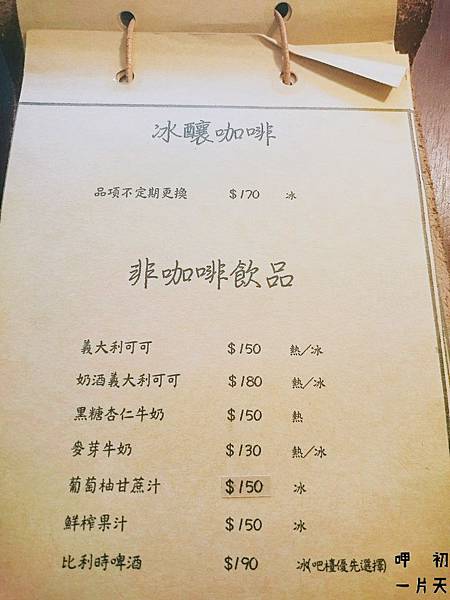 冰釀咖啡
品項不定期更換 $170 冰
非咖啡飲品
義大利可可 $150 熱/冰
奶酒義大利可可 $180 熱/冰
黑糖杏仁牛奶 $150 熱
麥芽牛奶 $130 熱/冰
葡萄柚甘蔗汁 $150 冰
鮮榨果汁 $150 冰
比利時啤酒 $190 冰(吧檯優先選擇)
呷 初
一片天